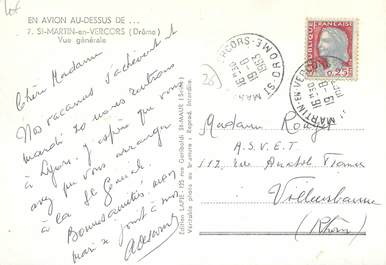 EN AVION AU-DESSUS DE ...
7. St-MARTIN-en-VERCORS (Drôme)
Vue générale
Chère Madame
Nos vacances s'achèvent et
mardi 20 nous rentrons
à Lyon. J'espère que vous
avez pu vous arranger
à la St
Bonne santé, mon
mari se joint à moi
Edition LAPIE - 125 rue Garibaldi St-MAUR (Seine)
Véritable photo au bromure : Reprod. Interdite.
ST MARTIN-EN-VERCORS DROME
16H
19 -8
1963
REPUBLIQUE FRANÇAISE
0,25
ST MARTIN-EN-VERCORS DROME
16H
19 -8
1963
Madame
A.S.V.E.T
112 rue Anatole France
Villeurbanne
(Rhône)